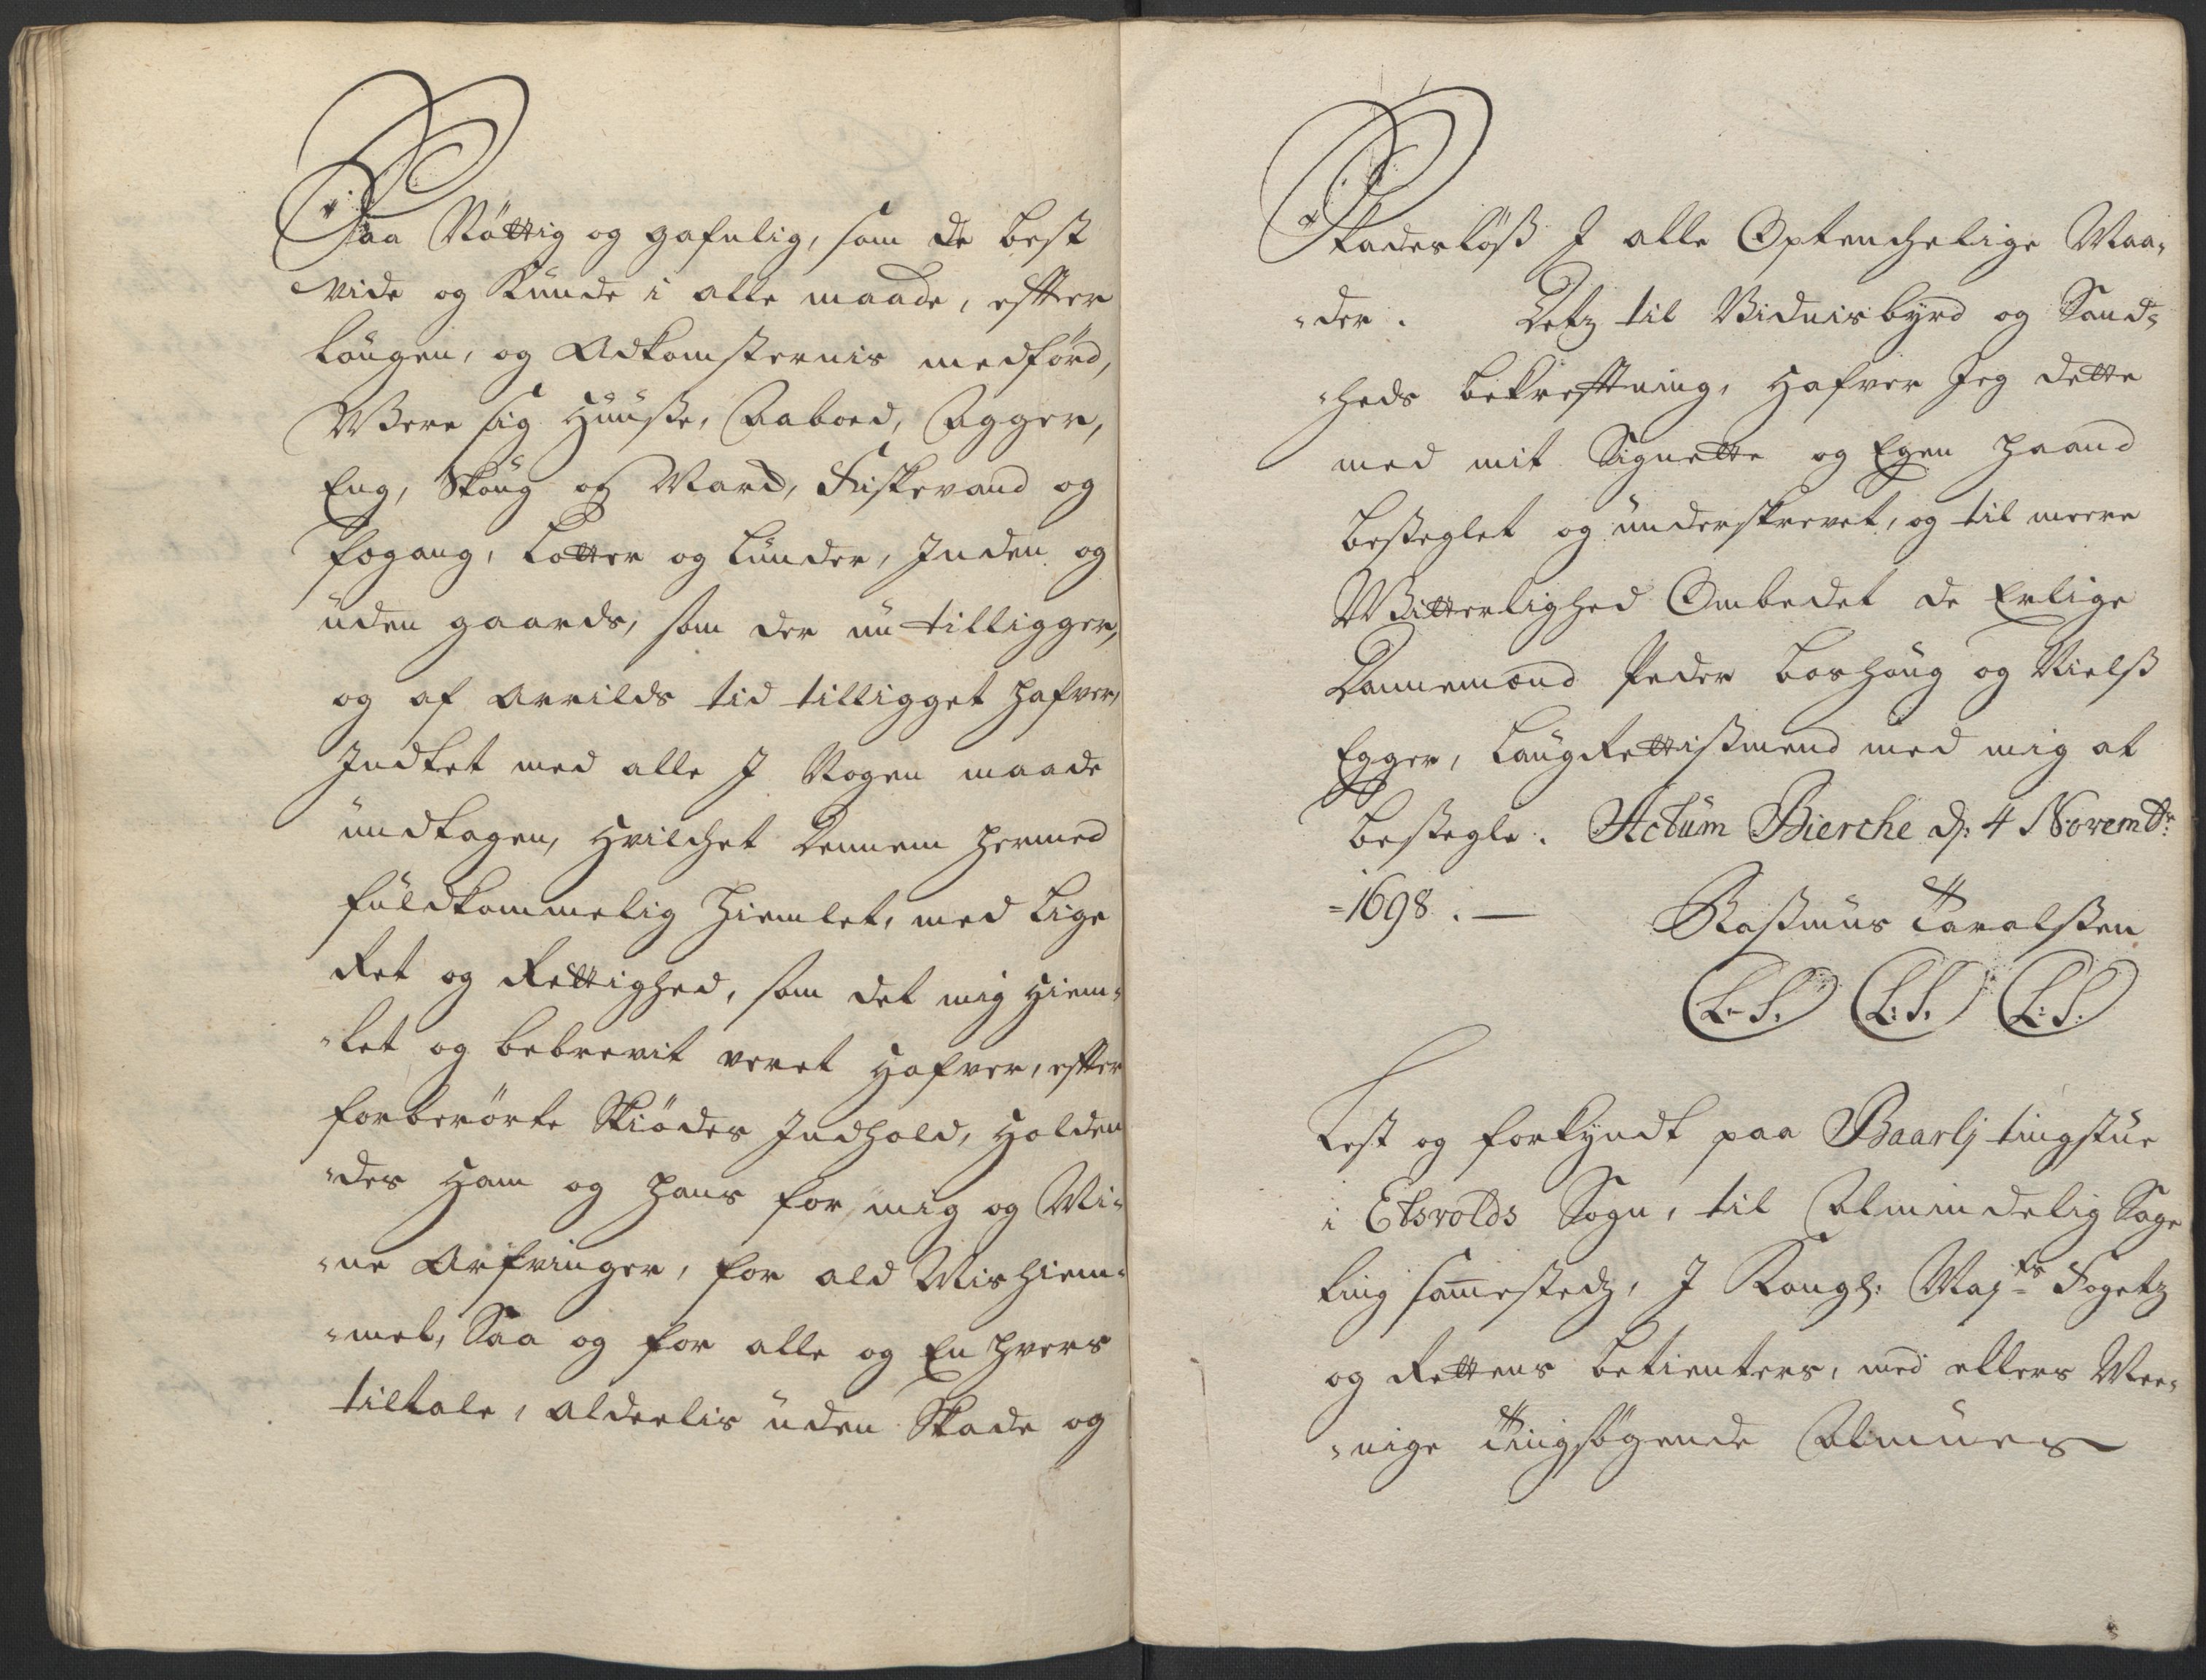 Saa Nöttig og gafnlig, som de best
vide og Kunde i alle maade, effter
Laugen, og Adkomsternis medförd,
Were sig Huuse, Aaboed, Agger,
Eng, Skoug og Marck, Fiskevand og
Fægang, Lotter og Lunder, Inden og
uden gaards, som der nu tilligger,
og af Arrilds tid tilligget hafver,
Indtet med alle I Nogen maade
undtagen, Hvilchet Dennem hermed
fuldkommelig Hiemlet, med Lige
Ret og Rettighed, som det mig Hiem-
-let og bebrevit veret Hafver, efter
forberörte Skiödes Indhold, Holden
-des Ham og Hans for mig og Mi-
-ne Arfvinger, for ald Mishiem-
-mel, Saa og for alle og En hvers
tiltale, alderlis uden Skade og
Skadeslöß I alle Optenchelige Maa-
-der. Detz til Vidnisbyrd og Sand-
-heds bekrefftning, Hafver Jeg dette
med mit Signette og Egen Haand
beseglet og underskrevet, og til meere
Witterlighed Ombedet de Erlige
Dannemænd Peder Boshoug og Nielß
Egger, Laugrettißmend med mig at
besegle. Actum Bierche d: 4 Novembr:
=1698. — Rasmus Taralsen
L.S. L:S. L:S:
Lest og forkyndt paa Baarlj tingstue
i Etsvolds Sogn, til Almindelig Sage
ting sammestedz, I Kongl: Maj:ts Fogetz
og Rettens betienters, med ellers Mee-
-nige Tingsögende Almues